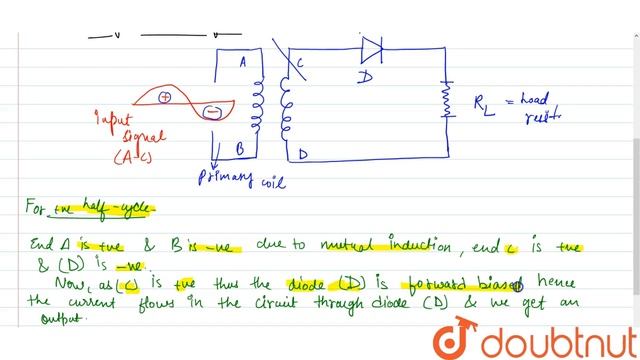 A
C
D
+
-
Input
signal
(A-C)
B
D
RL = Load
resist
primary coil
For +ve half-cycle
End A is +ve & B is -ve due to mutual induction, end C is +ve
& (D) is -ve.
Now, as (C) is +ve thus the diode (D) is forward biased hence
the current flows in the circuit through diode (D) & we get an
output.
doubtnut